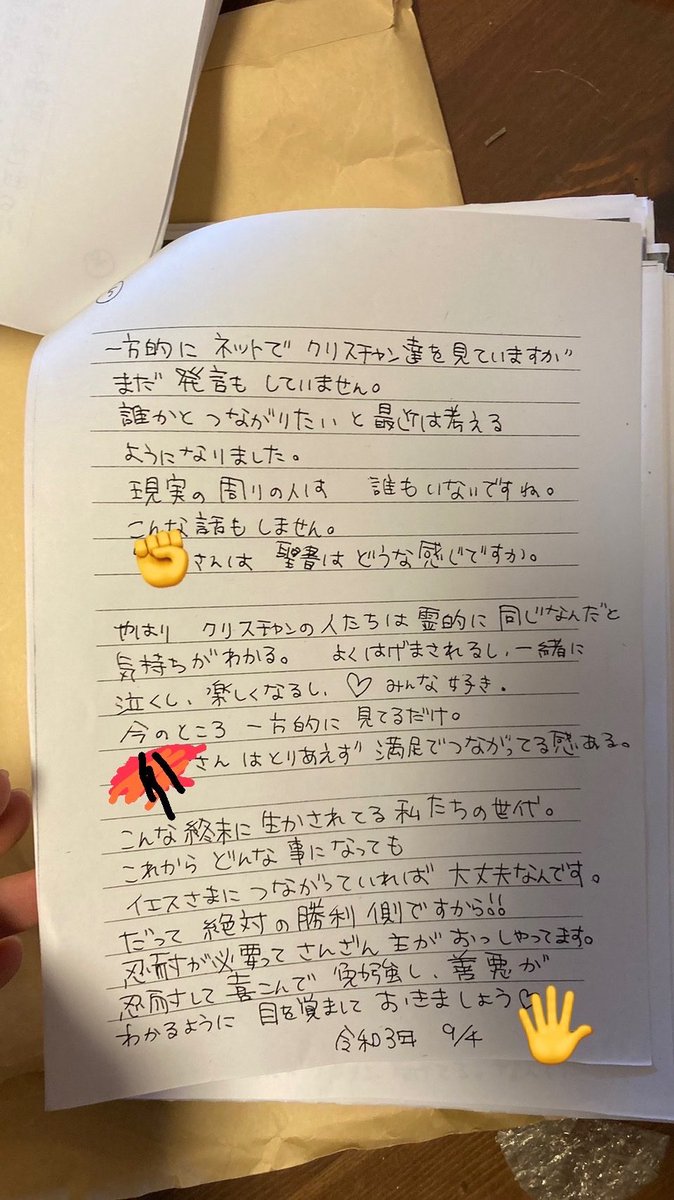 5
一方的に ネットで クリスチャン達を見ていますが
まだ 発言も していません。
誰かと つながりたい と 最近は考える
ようになりました。
現実の 周りの人は 誰もいないですね。
こんな話もしません。
さんは 聖書は どうな感じですか。
やはり クリスチャンの人たちは 霊的に 同じなんだと
気持ちがわかる。 よくはげまされるし、一緒に
泣くし、楽しくなるし、♡ みんな好き。
今のところ 一方的に 見てるだけ。
さん はとりあえず 満足でつながってる感ある。
こんな終末に 生かされてる 私たちの世代。
これから どんな事になっても
イエスさまに つながっていれば 大丈夫なんです。
だって 絶対の勝利側ですから!!
忍耐が必要って さんざん 主が おっしゃってます。
忍耐して 喜こんで 勉強し、善悪が
わかるように 目を覚まして おきましょう♡
令和3年 9/4